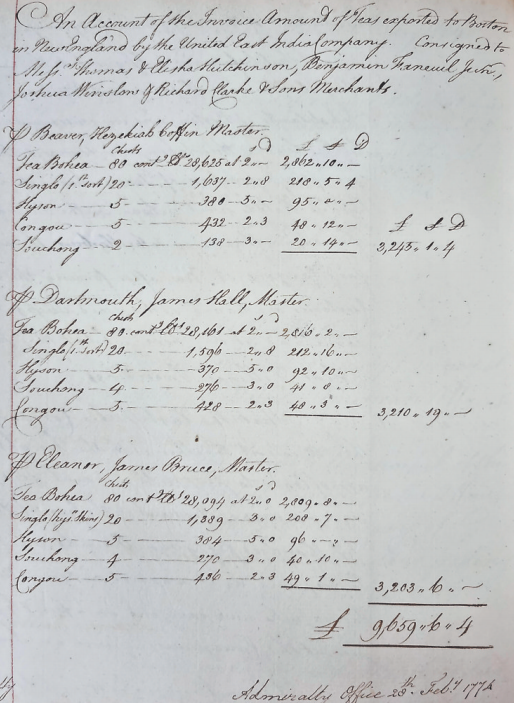 An Account of the Invoice Amount of Teas exported to Boston
in New England by the United East India Company. Consigned to
Mess.rs Thomas & Elisha Hutchinson, Benjamin Faneuil Junr.,
Joshua Winslow & Richard Clarke & Sons Merchants.
P Beaver, Hezekiah Coffin Master.
chests s D £ s D
Tea Bohea 80 cont.g lbs 28,625 at 2 " — 2,862 " 10 " —
Singlo (1st sort) 20 1,637 2 " 8 218 " 5 " 4
Hyson 5 380 5 " — 95 " " " —
Congou 5 432 2 " 3 48 " 12 " — £ s D
Souchong 2 138 3 " — 20 " 14 " — 3,245 " 1 " 4
P Dartmouth, James Hall, Master.
chests s D
Tea Bohea 80 cont.g lbs 28,161 at 2 " — 2,816 " 2 " —
Singlo (1st sort) 20 1,596 2 " 8 212 " 16 " —
Hyson 5 370 5 " 0 92 " 10 " —
Souchong 4 276 3 " 0 41 " 8 " —
Congou 5 428 2 " 3 48 " 3 " — 3,210 " 19 " —
P Eleanor, James Bruce, Master.
chests s D
Tea Bohea 80 cont.g lbs 28,094 at 2 " 0 2,809 " 8 " —
Singlo (Hys.n Skins) 20 1,389 3 " 0 208 " 7 " —
Hyson 5 384 5 " 0 96 " — " —
Souchong 4 270 3 " 0 40 " 10 " —
Congou 5 436 2 " 3 49 " 1 " — 3,203 " 6 " —
£ 9,659 " 6 " 4
Admiralty Office 28th Feb.y 1774